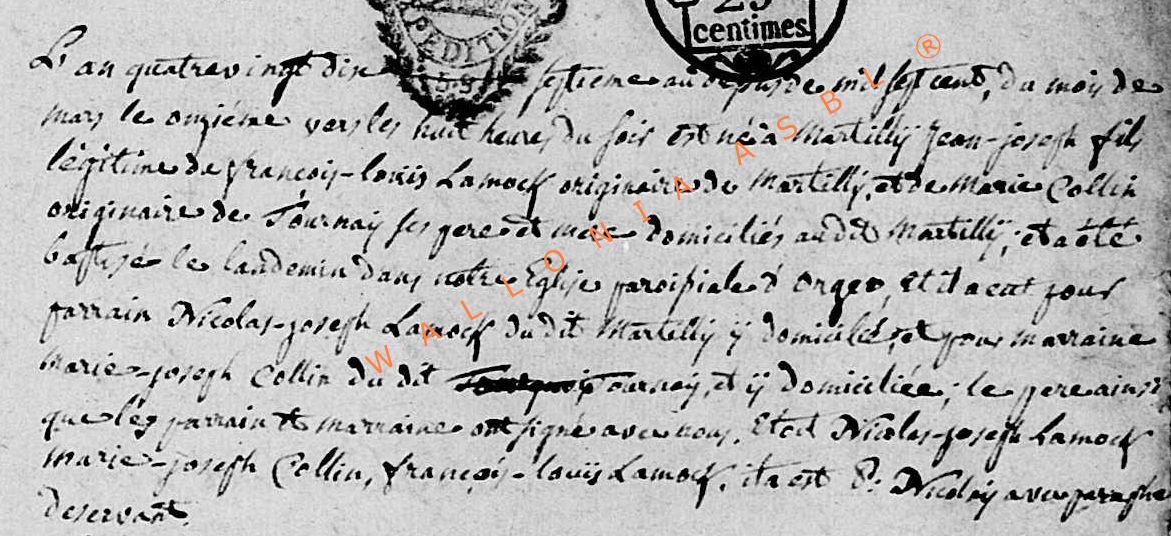 PEDITION
25
centimes
L'an quatrevingt dix septieme au dessus de mil sept cent, du mois de
mars le onzième vers les huit heures du soir est né à Martilly Jean-joseph fils
légitime de françois-louis Lamock originaire de Martilly, et de Marie Collin
originaire de Tournay ses pere et mere domiciliés audit Martilly; et a été
baptisé le landemin dans notre Eglise paroissiale d'orgeo, Et il a eut pour
parrain Nicolas-joseph Lamock dudit Martilly ÿ domicilié, et pour marraine
marie-joseph Collin du dit Tournay, et ÿ domiciliée; le pere ainsi
que les parrain et marraine ont signé avec nous. Etoit Nicolas-joseph Lamock
marie-joseph Collin, françois-louis Lamock, ita est Nicolaÿ avec paraphe
deservant.
WALLONIA ASBL ®